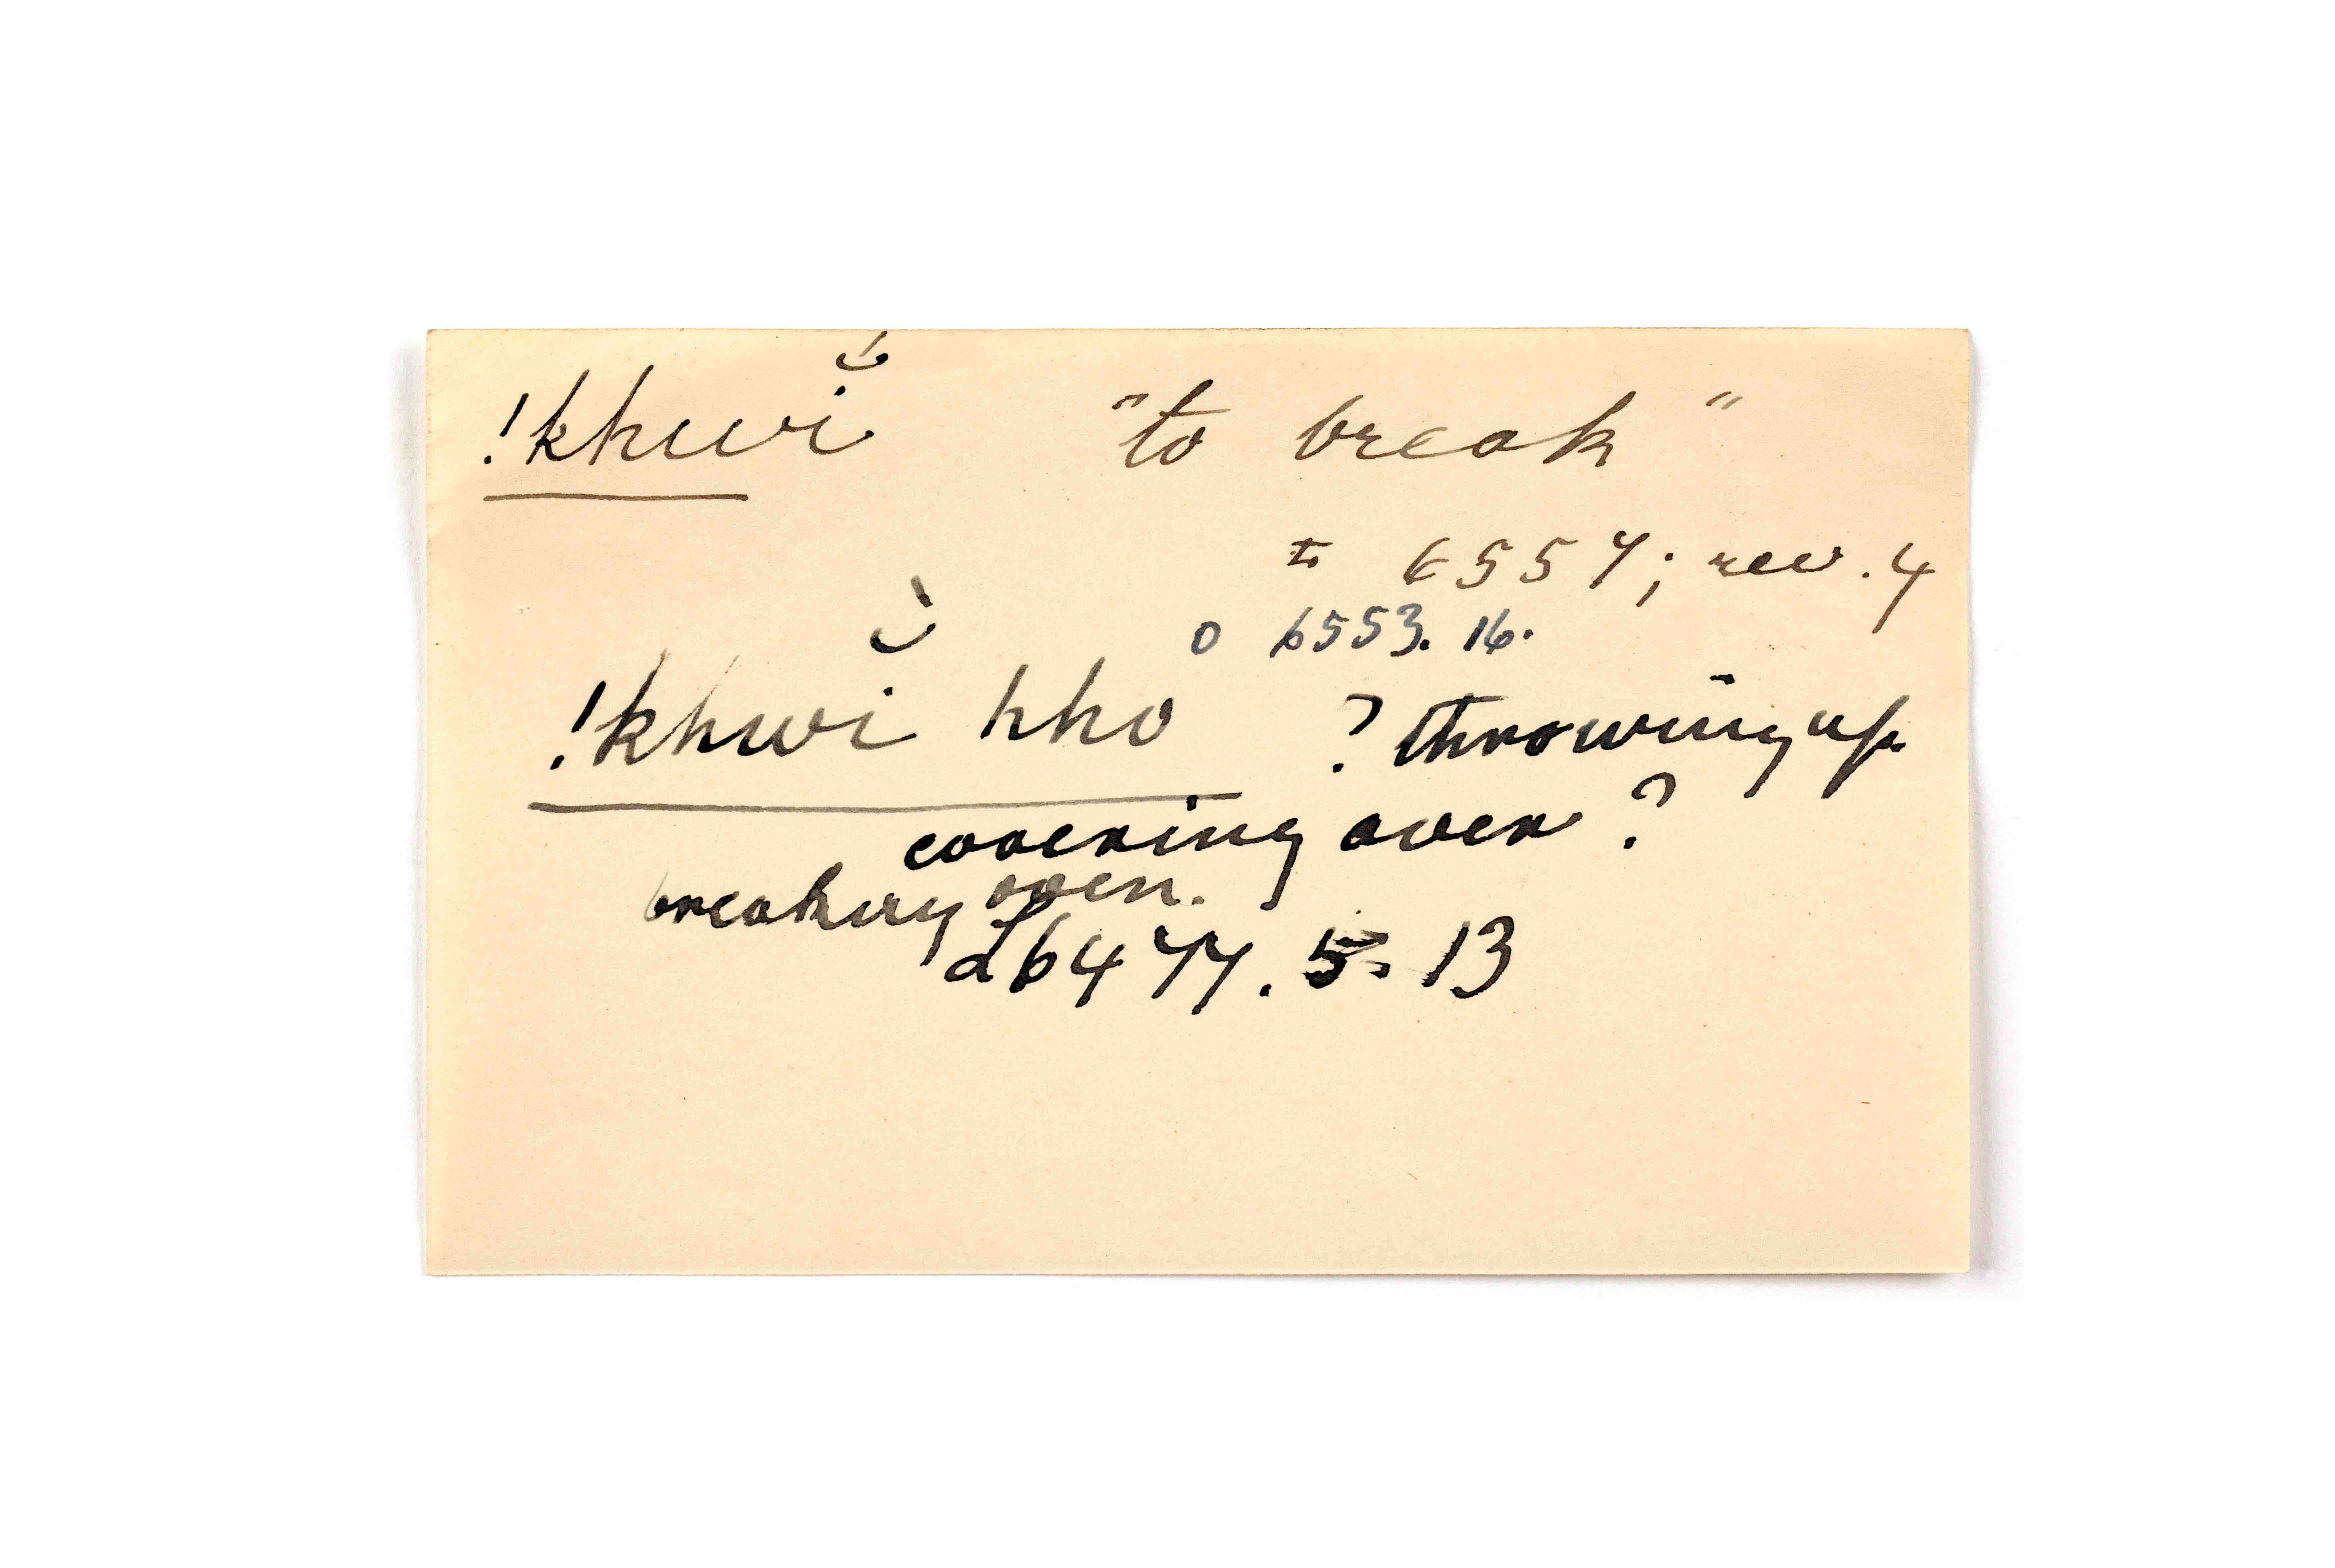 !khwĭ́ "to break"
to 6557; rev. 4
o 6553. 16.
!khwĭ̀ hho ? throwing up
covering over ?
breaking over.
d 6477. 5. 13